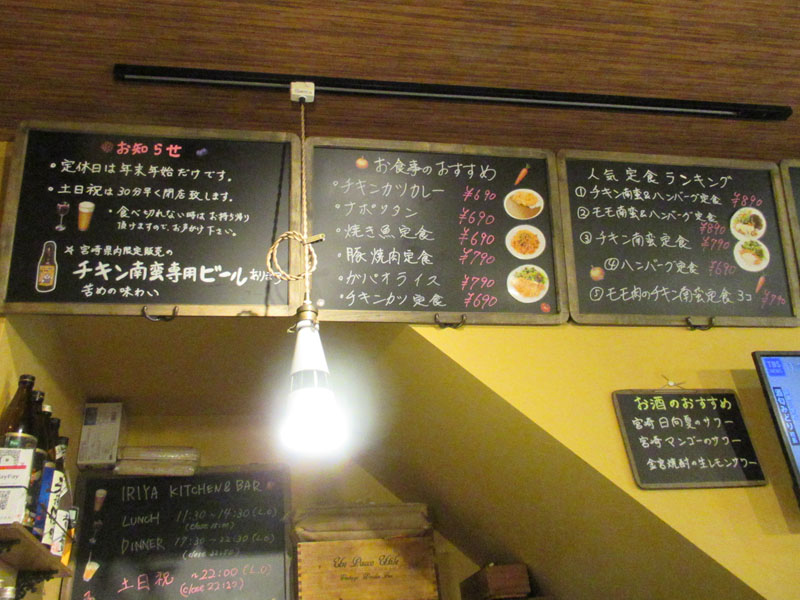 お知らせ
・定休日は年末年始だけです。
・土日祝は30分早く閉店致します。
・食べ切れない時はお持ち帰り
頂けますので、お声かけ下さい。
※宮崎県内限定販売の
チキン南蛮専用ビール
苦めの味わい
お食事のおすすめ
・チキンカツカレー ¥690
・ナポリタン ¥690
・焼き魚定食 ¥690
・豚焼肉定食 ¥790
・ガパオライス ¥790
・チキンカツ定食 ¥690
人気定食ランキング
①チキン南蛮&ハンバーグ定食 ¥890
②モモ南蛮&ハンバーグ定食 ¥890
③チキン南蛮定食 ¥790
④ハンバーグ定食 ¥690
⑤モモ肉のチキン南蛮定食 3コ ¥790
お酒のおすすめ
宮崎日向夏のサワー
宮崎マンゴーのサワー
金宮焼酎の生レモンサワー
IRIYA KITCHEN & BAR
LUNCH 11:30~14:30(L.O)
DINNER 17:30~22:30(L.O)
土日祝 ~22:00(L.O)
TBS